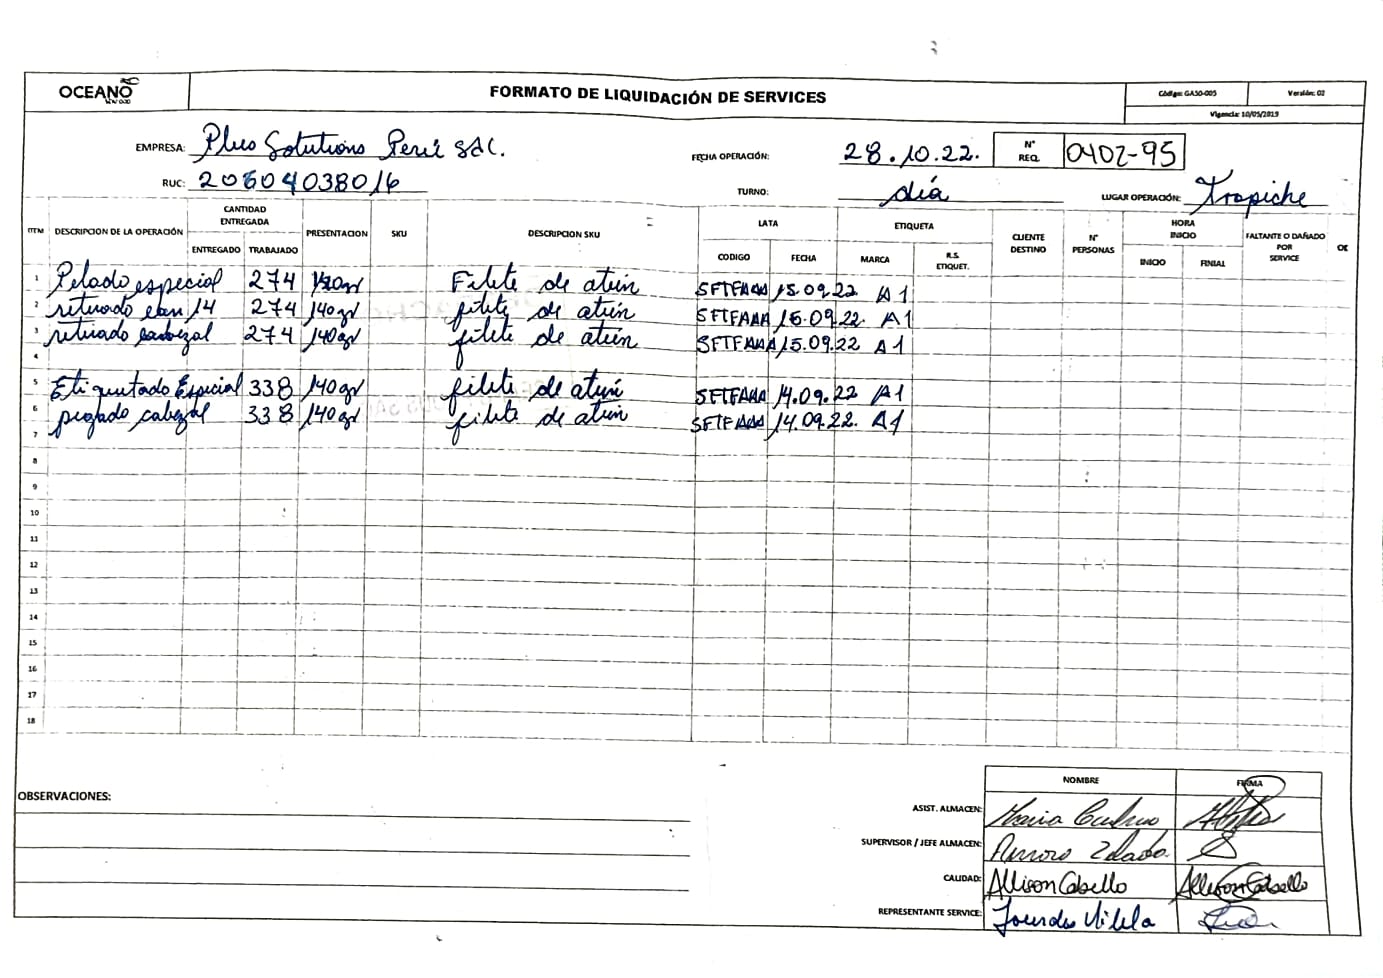 OCEANO
FORMATO DE LIQUIDACIÓN DE SERVICES
Código: GASO-005
Versión: 02
Vigencia: 10/05/2019
EMPRESA: Plus Solutions Perú SAC.
FECHA OPERACIÓN: 28.10.22.
N° REQ. 0402-95
RUC: 20604038016
TURNO: día
LUGAR OPERACIÓN: Trapiche
ITM DESCRIPCION DE LA OPERACIÓN CANTIDAD ENTREGADA ENTREGADO TRABAJADO PRESENTACION SKU DESCRIPCION SKU LATA CODIGO FECHA ETIQUETA MARCA R.S. ETIQUET. CLIENTE DESTINO N° PERSONAS HORA INICIO INICIO FINIAL FALTANTE O DAÑADO POR SERVICE OE
1 Pelado especial 274 Filete de atún 15.09.22 A1
2 14 274 140gr filete de atún 15.09.22. A1
3 274 140gr filete de atún 15.09.22 A1
4
5 Etiquetado Especial 338 140gr filete de atún 14.09.22 A1
6 pegado cabezal 338 140gr filete de atún 14.09.22. A1
7
8
9
10
11
12
13
14
15
16
17
18
OBSERVACIONES:
NOMBRE FIRMA
ASIST. ALMACEN: Maria
SUPERVISOR / JEFE ALMACEN:
CALIDAD: Allison Cabello Allison Cabello
REPRESENTANTE SERVICE: Lourdes Vilela